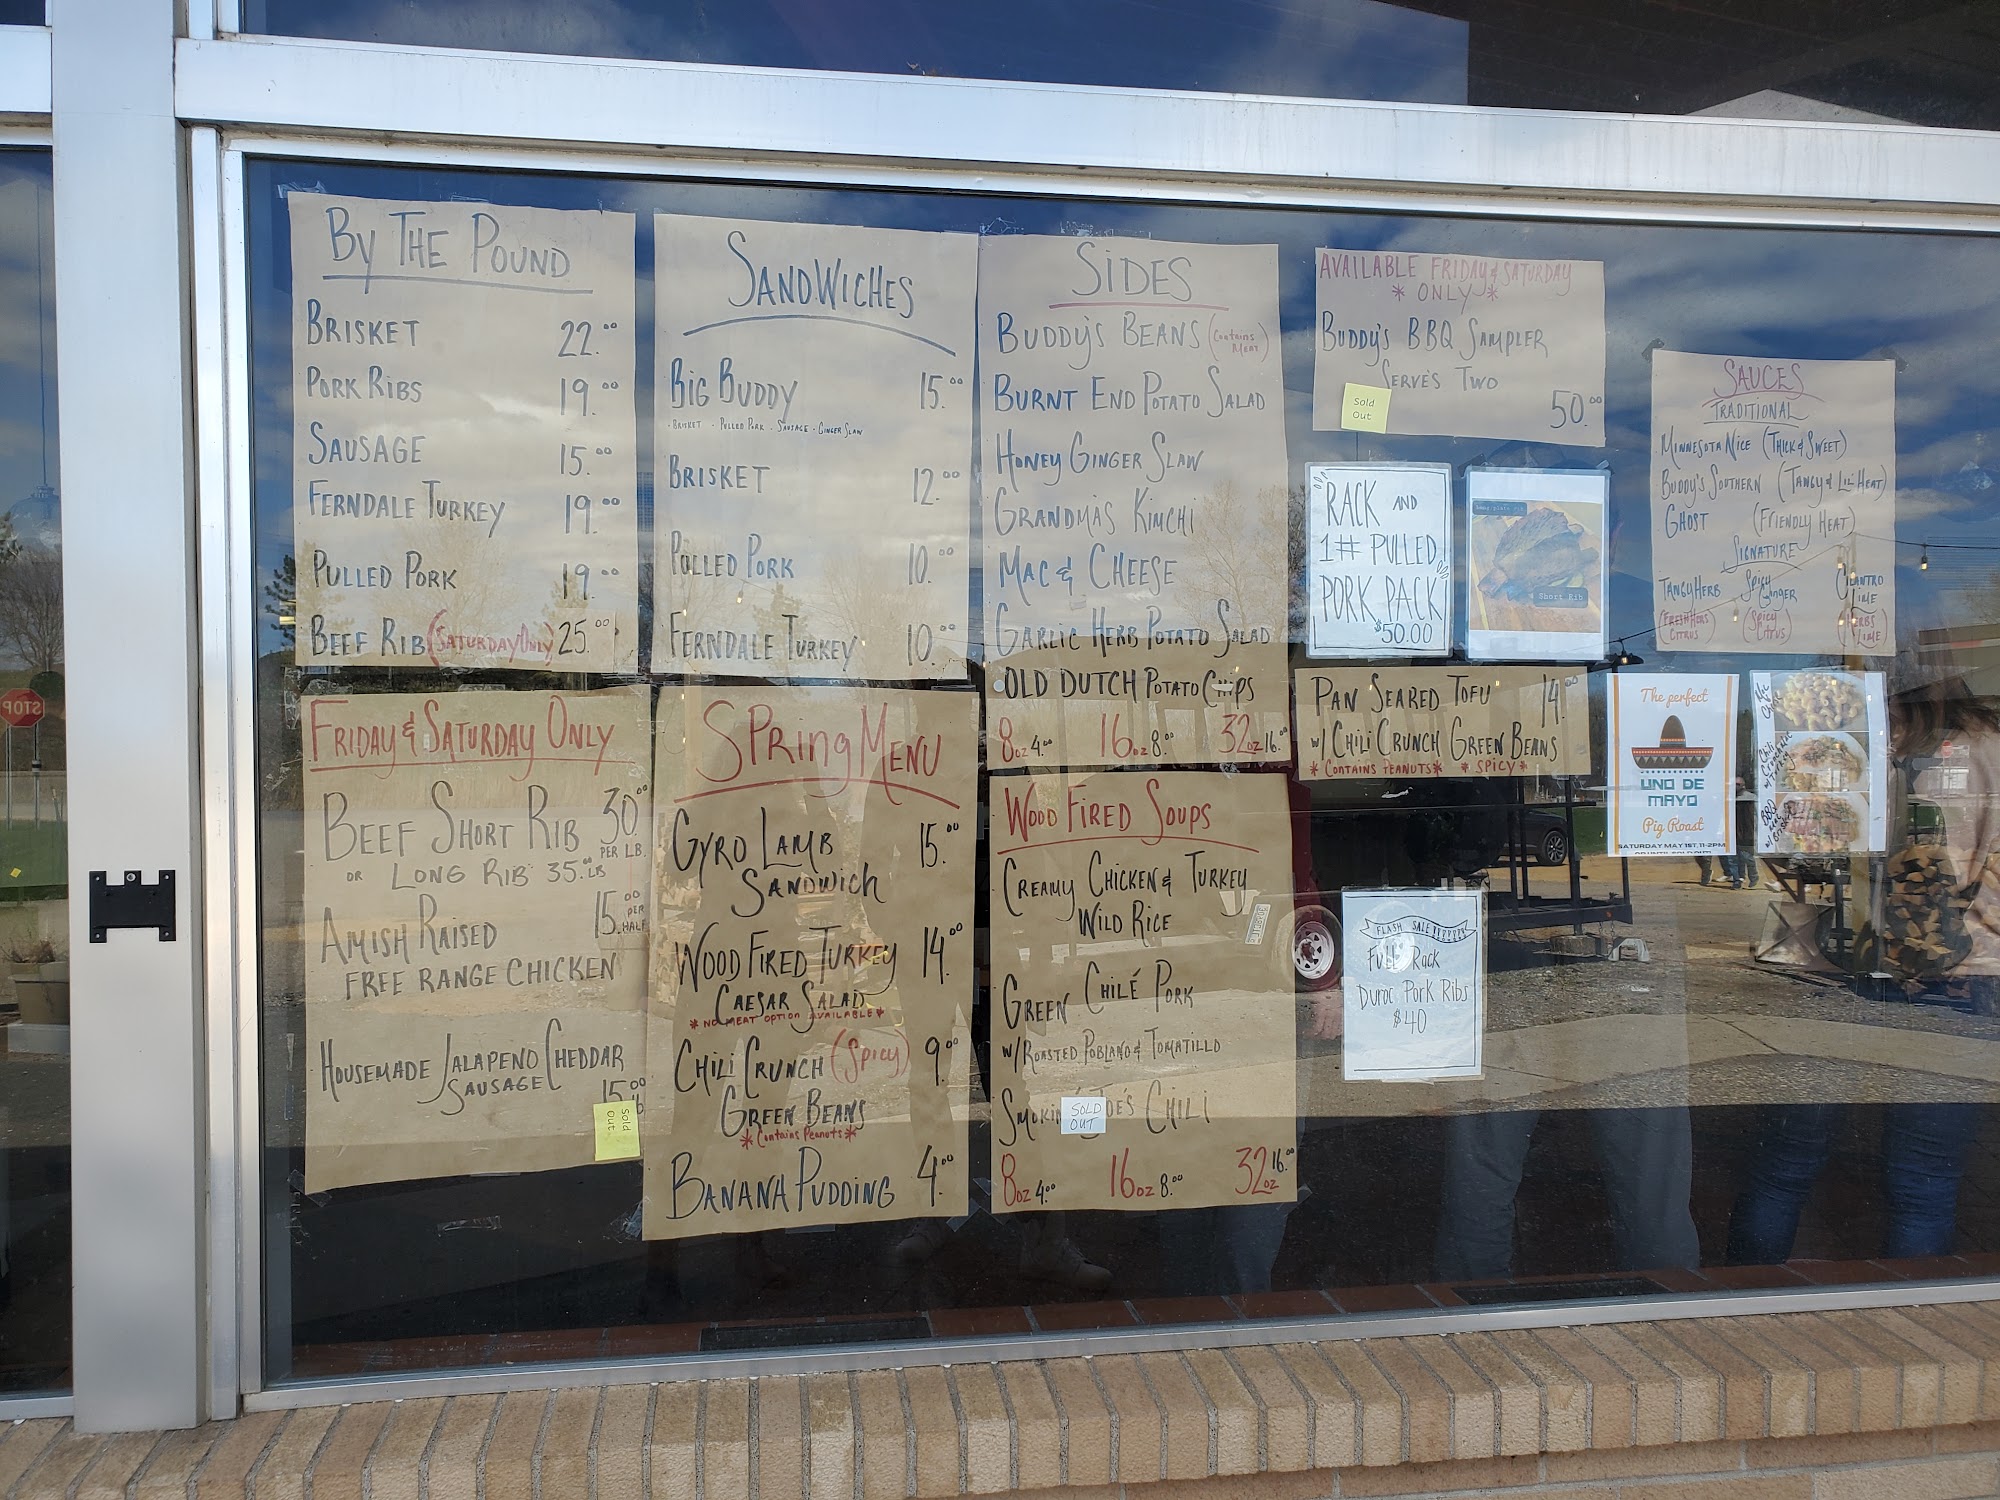 BY THE POUND
BRISKET 22.00
PORK RIBS 19.00
SAUSAGE 15.00
FERNDALE TURKEY 19.00
PULLED PORK 19.00
BEEF RIB (SATURDAY ONLY) 25.00
SANDWICHES
BIG BUDDY 15.00
- BRISKET - PULLED PORK - SAUSAGE - GINGER SLAW
BRISKET 12.00
PULLED PORK 10.00
FERNDALE TURKEY 10.00
SIDES
BUDDY'S BEANS (Contains Meat)
BURNT END POTATO SALAD
HONEY GINGER SLAW
GRANDMA'S KIMCHI
MAC & CHEESE
GARLIC HERB POTATO SALAD
OLD DUTCH POTATO CHIPS
8oz 4.00 16oz 8.00 32oz 16.00
AVAILABLE FRIDAY & SATURDAY
* ONLY *
BUDDY'S BBQ SAMPLER
SERVE'S TWO
50.00
Sold
Out
RACK AND
1# PULLED
PORK PACK
$50.00
Short Rib
SAUCES
TRADITIONAL
MINNESOTA NICE (THICK & SWEET)
BUDDY'S SOUTHERN (TANGY & LIL' HEAT)
GHOST (FRIENDLY HEAT)
SIGNATURE
TANGY HERB SPICY GINGER CILANTRO LIME
(FRESH HERBS CITRUS) (SPICY CITRUS) (HERBS LIME)
FRIDAY & SATURDAY ONLY
BEEF SHORT RIB 30.00
PER LB.
OR LONG RIB 35.00 LB
AMISH RAISED 15.00 PER HALF
FREE RANGE CHICKEN
HOUSEMADE JALAPENO CHEDDAR
SAUSAGE 15.00
lb
Sold
Out
SPRING MENU
GYRO LAMB 15.00
SANDWICH
WOOD FIRED TURKEY 14.00
CAESAR SALAD
* NO MEAT OPTION AVAILABLE *
CHILI CRUNCH (SPICY) 9.00
GREEN BEANS
* Contains Peanuts *
BANANA PUDDING 4.00
WOOD FIRED SOUPS
CREAMY CHICKEN & TURKEY
WILD RICE
GREEN CHILÉ PORK
W/ ROASTED POBLANO & TOMATILLO
SMOKIN' JOE'S CHILI
SOLD
OUT
8oz 4.00 16oz 8.00 32oz 16.00
PAN SEARED TOFU 14.00
W/ CHILI CRUNCH GREEN BEANS
* CONTAINS PEANUTS * * SPICY *
The perfect
UNO DE
MAYO
Pig Roast
SATURDAY MAY 1ST, 11-2PM
OR UNTIL SOLD OUT!
FLASH SALE
FULL RACK
DUROC PORK RIBS
$40
STOP